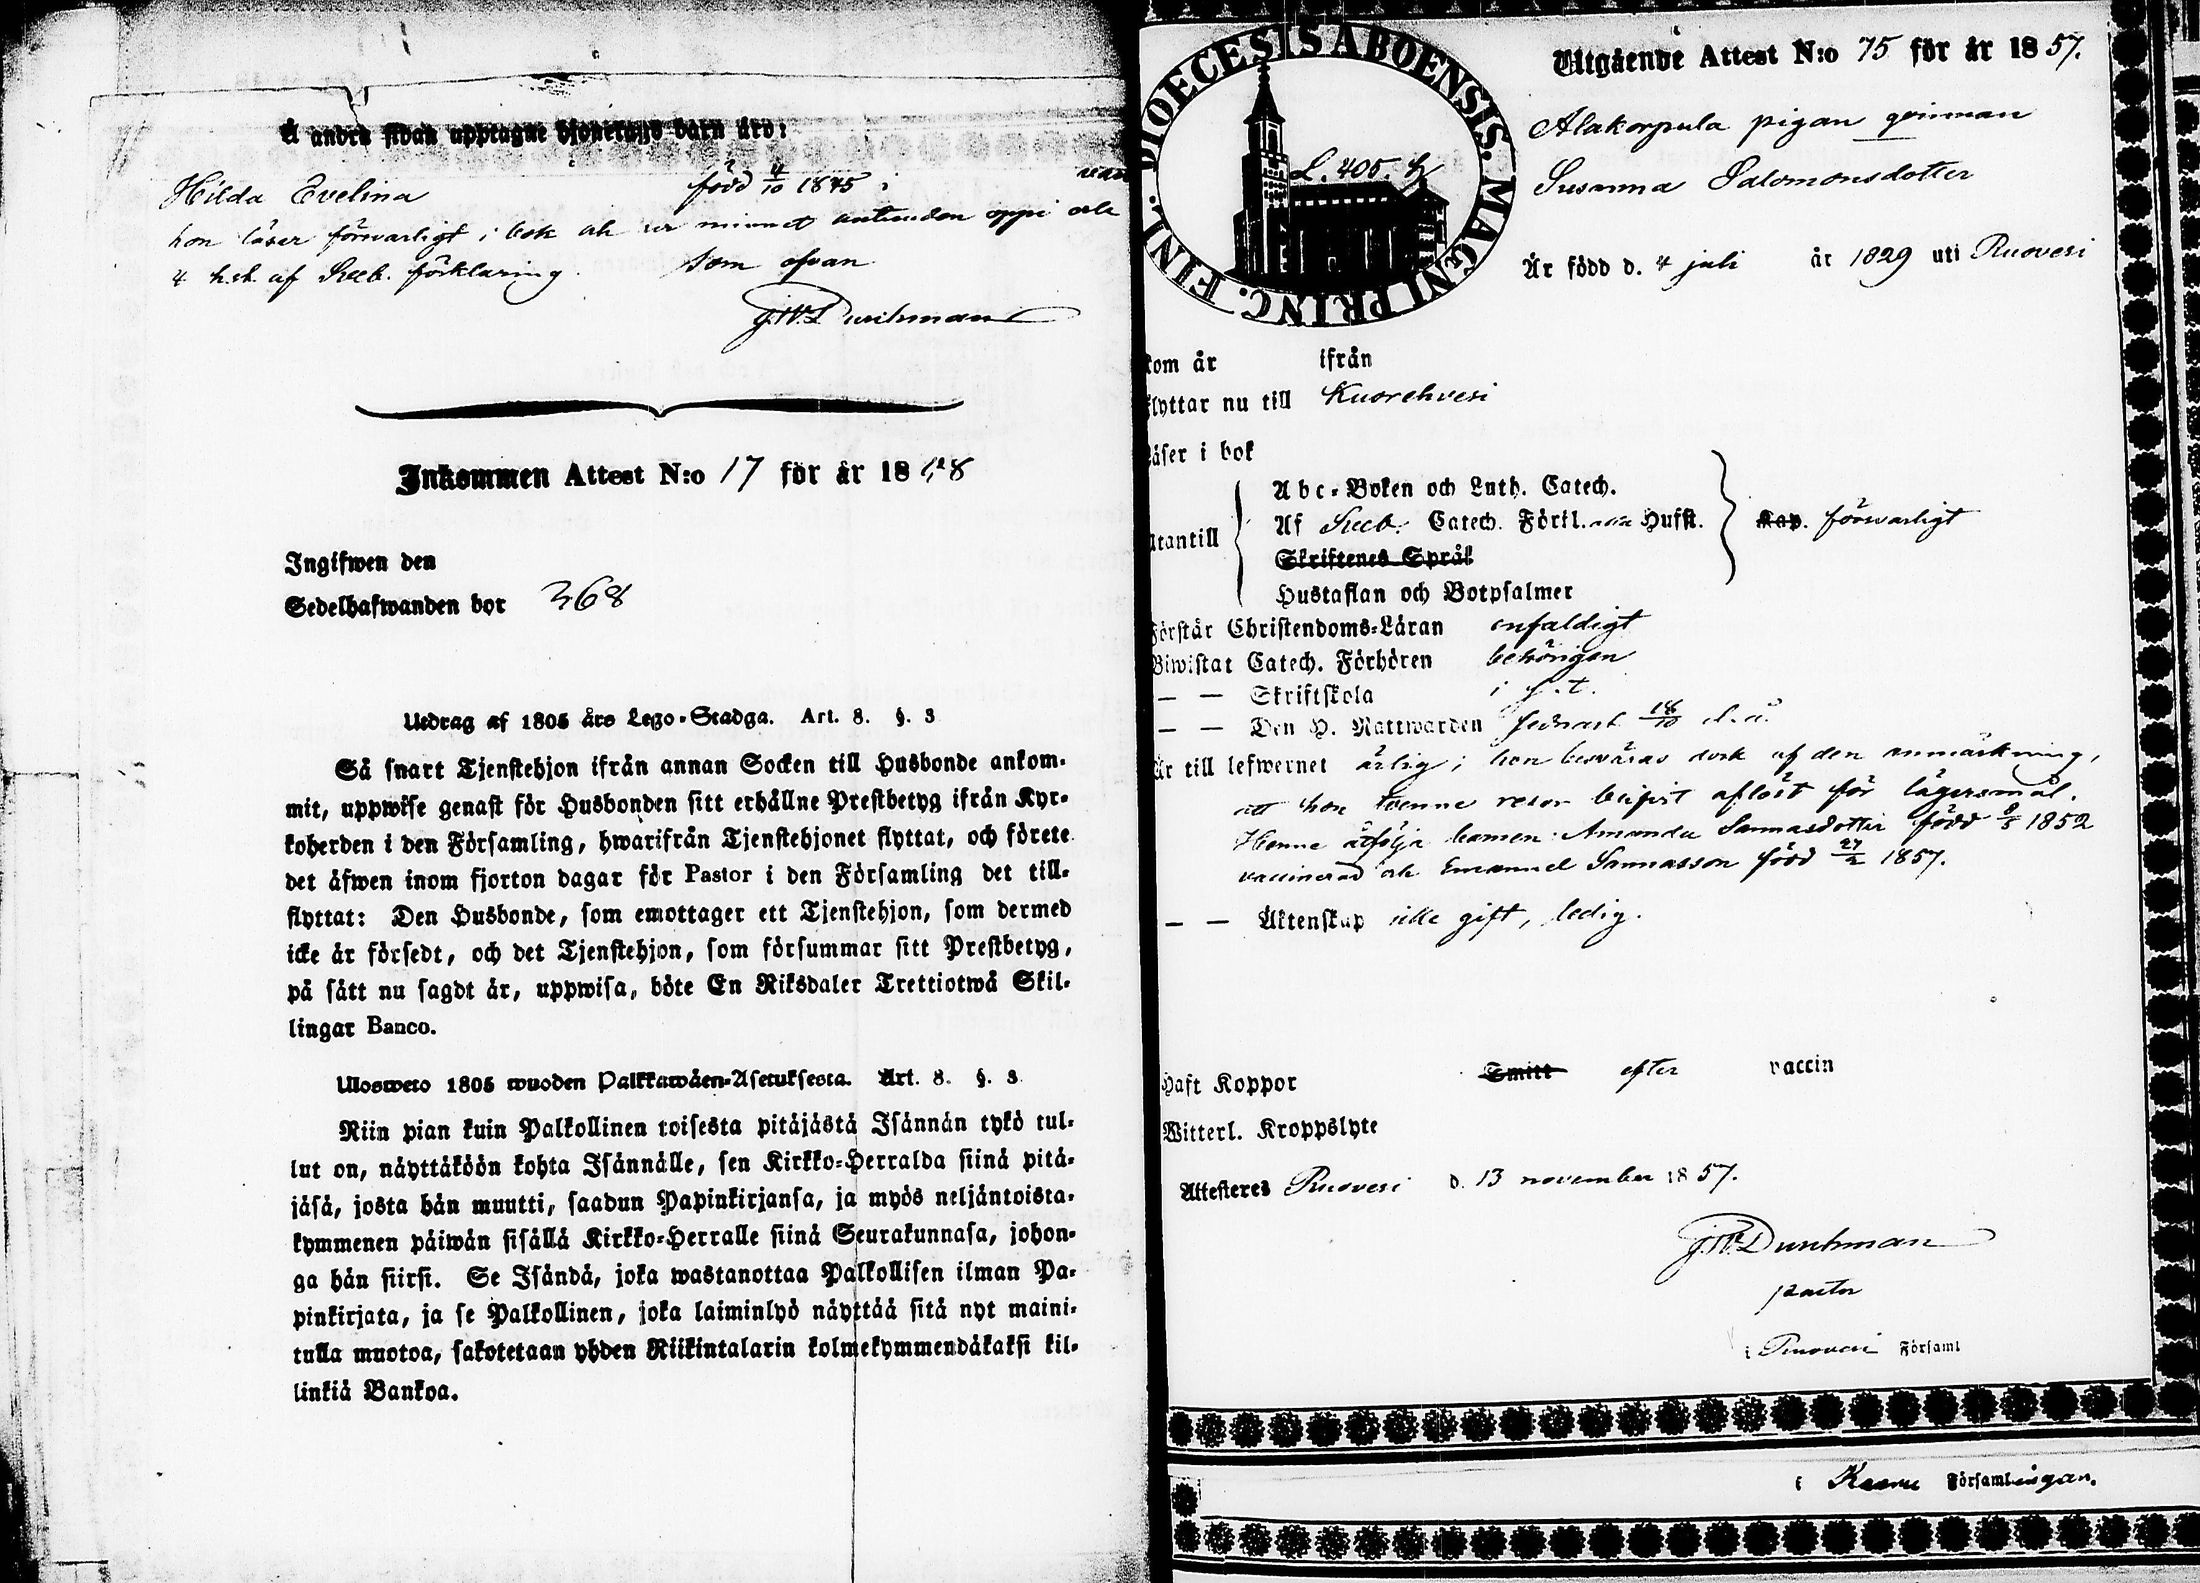 Å andra sidan upptagne hjonelags barn äro:
Hilda Evelina född 4/10 1845
hon läser försvarligt i bok och ur minnet
4 h.st. af Sveb. förklaring. som ofvan
J.W. Durchman
Inkommen Attest N:o 17 för år 1858
Ingifwen den
Sedelhafwanden bor 368
Utdrag af 1805 års Lego-Stadga. Art. 8. §. 3
Så snart Tjenstehjon ifrån annan Socken till Husbonde ankom-
mit, uppwise genast för Husbonden sitt erhållne Prestbetyg ifrån Kyr-
koherden i den Församling, hwarifrån Tjenstehjonet flyttat, och förete
det äfwen inom fjorton dagar för Pastor i den Församling det till-
flyttat: Den Husbonde, som emottager ett Tjenstehjon, som dermed
icke är försedt, och det Tjenstehjon, som försummar sitt Prestbetyg,
på sätt nu sagdt är, uppwisa, böte En Riksdaler Trettiotwå Skil-
lingar Banco.
Ulosweto 1805 wuoden Palkkawäen-Asetuksesta. Art. 8. §. 3
Niin pian kuin Palkollinen toisesta pitäjästä Isännän tykö tul-
lut on, näyttäköön kohta Isännälle, sen Kirkko-Herralda siinä pitä-
jäsä, josta hän muutti, saadun Papinkirjansa, ja myös neljäntoista-
kymmenen päiwän sisällä Kirkko-Herralle siinä Seurakunnasa, johon-
ga hän siirsi. Se Isändä, joka wastanottaa Palkollisen ilman Pa-
pinkirjata, ja se Palkollinen, joka laiminlyö näyttää sitä nyt maini-
tulla muotoa, sakotetaan yhden Riikintalarin kolmekymmendäkaksi kil-
linkiä Bankoa.
DIOECESIS ABOENSIS. MAGNI PRINC. FINL.
L. 405.
Utgående Attest N:o 75 för år 1857.
Alakorpula pigan qvinnan
Susanna Salomonsdotter
Är född d. 4 juli år 1829 uti Ruovesi
kom år ifrån
flyttar nu till Kuorehvesi
Läser i bok
Utantill
Abc-Boken och Luth. Catech.
Af Sveb. Catech. Förkl. Hufst. Kap. försvarligt
Skriftenes Språk
Hustaflan och Botpsalmer
Förstår Christendoms-Läran enfaldigt
Biwistat Catech. Förhören behörigen
— — Skriftskola i s.t.
— — Den H. Nattwarden sednast 18/10 d.å.
Är till lefwernet ärlig; hon besväras dock af den anmärkning,
att hon tvenne resor blifvit aflöst för lägersmål.
Henne åtfölja barnen: Amanda Sannasdotter född 8/8 1852
vaccinerad och Emanuel Sannasson född 27/2 1857.
— — Äktenskap icke gift, ledig.
Haft Koppor Smitt efter vaccin
Witterl. Kroppslyte
Attesteres Ruovesi d. 13 november 1857.
J.W. Durchman
pastor
i Ruovesi Församl
i Församlingan.